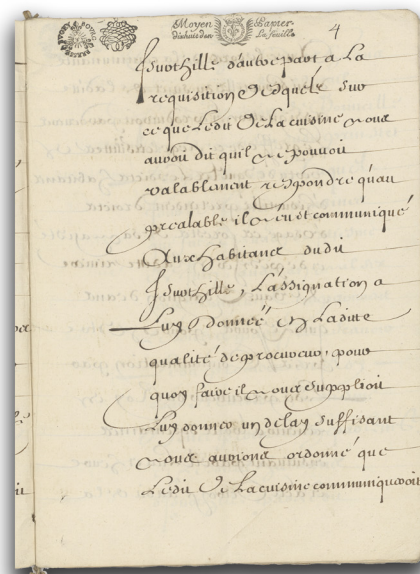 Moyen Papier
4
Isurthille d'autre part a La
requisition desquels sur
ce que Ledit De La cuisine nous
auroit dit quil ne pouvoit
valablement respondre qu'au
prealable il n'eut communiqué
Aux habitans dudit
Isurthille, L'assignation a
Luy donneé en Ladite
qualité de procureur, pour
quoy faire il nous supplioit
Luy donner un delay suffisant
nous aurions ordonné que
Ledit De La cuisine communiqueroit